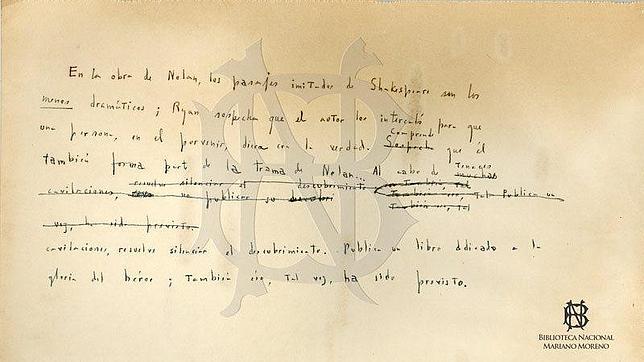 En la obra de Nolan, los pasajes imitados de Shakespeare son los
menos dramáticos; Ryan sospecha que el autor los intercaló para que
una persona, en el porvenir, diera con la verdad. Comprende que él
también forma parte de la trama de Nolan... Al cabo de tenaces muchas
cavilaciones, resuelve silenciar el descubrimiento no publicar su
Tal Publica un
vez, ha sido previsto.
cavilaciones, resuelve silenciar el descubrimiento. Publica un libro dedicado a la
gloria del héroe; también eso, tal vez, ha sido previsto.
BIBLIOTECA NACIONAL
MARIANO MORENO